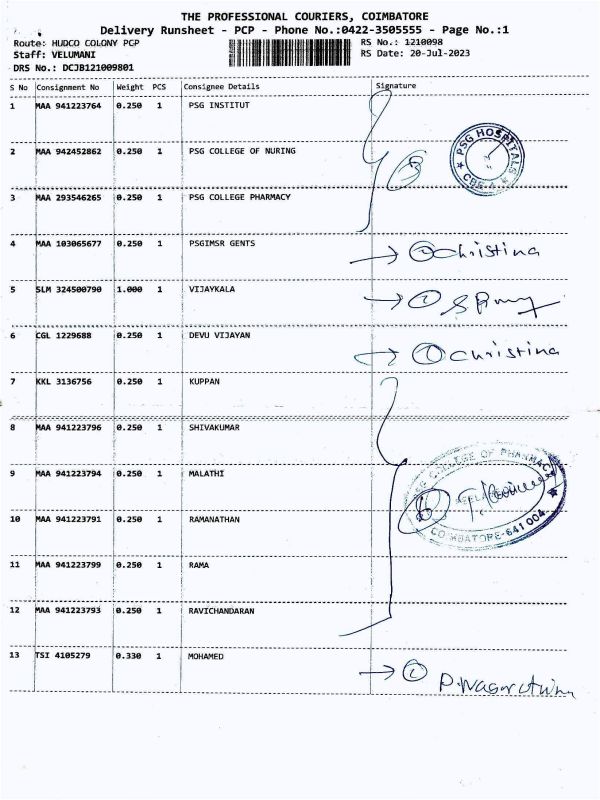 THE PROFESSIONAL COURIERS, COIMBATORE
Delivery Runsheet - PCP - Phone No.:0422-3505555 - Page No.:1
Route: HUDCO COLONY PCP RS No.: 1210098
Staff: VELUMANI RS Date: 20-Jul-2023
DRS No.: DCJB121009801
S No Consignment No Weight PCS Consignee Details Signature
1 MAA 941223764 0.250 1 PSG INSTITUT
2 MAA 942452862 0.250 1 PSG COLLEGE OF NURING
PSG HOSPITALS
CBE-4
3 MAA 293546265 0.250 1 PSG COLLEGE PHARMACY
4 MAA 103065677 0.250 1 PSGIMSR GENTS Christina
5 SLM 324500790 1.000 1 VIJAYKALA
6 CGL 1229688 0.250 1 DEVU VIJAYAN Christina
7 KKL 3136756 0.250 1 KUPPAN
8 MAA 941223796 0.250 1 SHIVAKUMAR
9 MAA 941223794 0.250 1 MALATHI
PSG COLLEGE OF PHARMACY
10 MAA 941223791 0.250 1 RAMANATHAN
COIMBATORE-641 004
11 MAA 941223799 0.250 1 RAMA
12 MAA 941223793 0.250 1 RAVICHANDARAN
13 TSI 4105279 0.330 1 MOHAMED